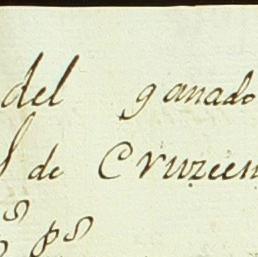 del ganado
de Cruzeen
ps